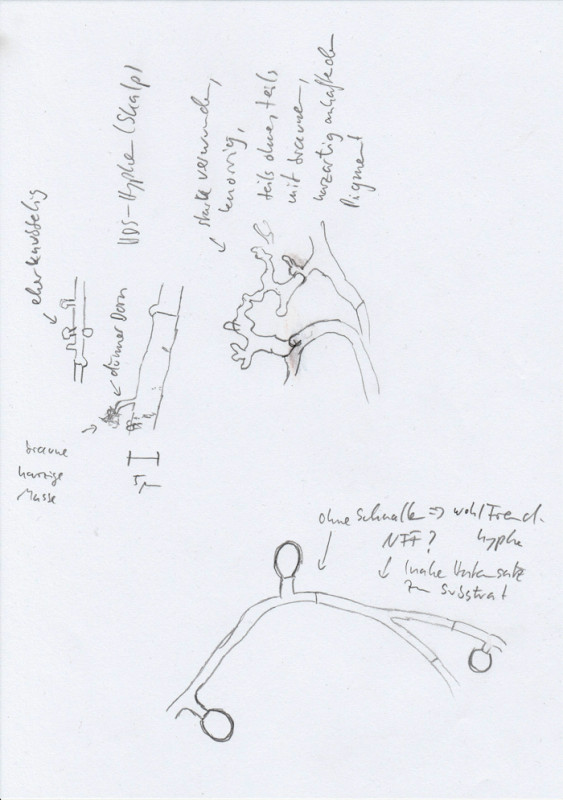 eher knubbelig
HDS-Hyphe (Skalp)
stark verwunden,
knorrig,
teils ohne, teils
mit braunem,
harzartig anhaftendem
Pigment
dünner Dorn
braune
harzige
Masse
5µ
ohne Schnalle => wohl Fremd-
hyphe
NFF?
(nahe Hutansatz
zum Substrat